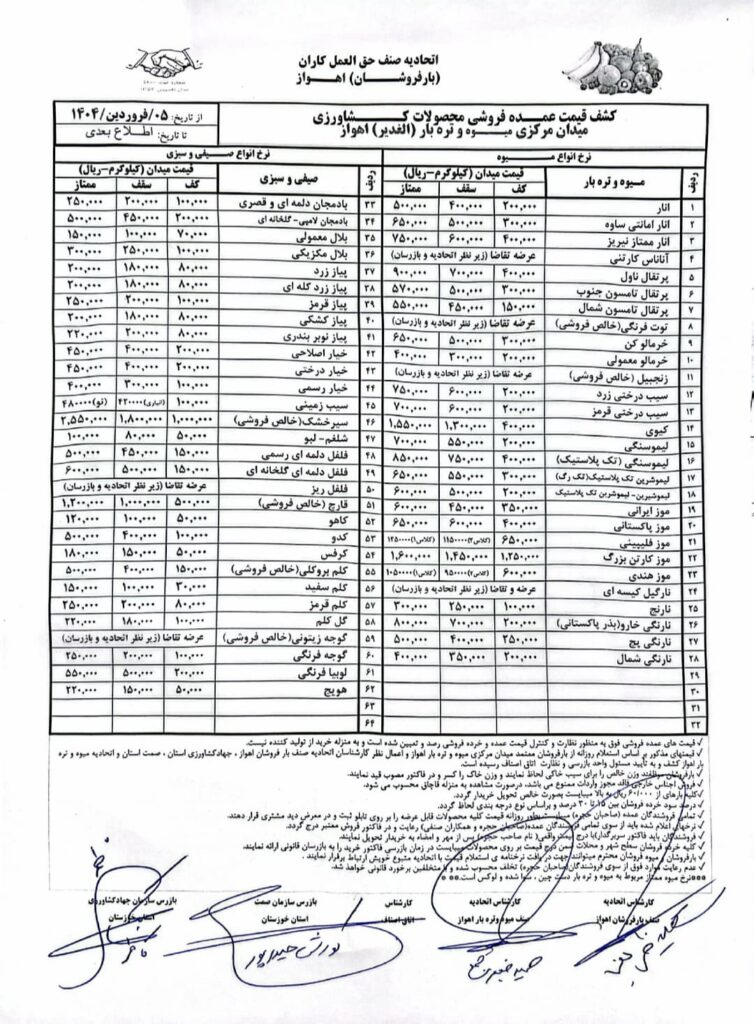 اتحادیه صنف حق العمل کاران
(بارفروشـــان) اهـواز
کشف قیمت عمده فروشی محصولات کـــشاورزی
میدان مرکزی میــوه و تره بار (الغدیر) اهواز
از تاریخ: ۰۵/فروردین/۱۴۰۴
تا تاریخ: اطلاع بعدی
نرخ انواع میــوه
ردیف میــوه و تره بار قیمت میدان (کیلوگرم-ریال)
کف سقف ممتاز
۱ انار ۲۰۰,۰۰۰ ۴۰۰,۰۰۰ ۵۰۰,۰۰۰
۲ انار امانتی ساوه ۳۰۰,۰۰۰ ۵۰۰,۰۰۰ ۶۵۰,۰۰۰
۳ انار ممتاز نیریز ۴۰۰,۰۰۰ ۶۰۰,۰۰۰ ۷۵۰,۰۰۰
۴ آناناس کارتنی عرضه تقاضا (زیر نظر اتحادیه و بازرسان)
۵ پرتقال ناول ۴۰۰,۰۰۰ ۷۰۰,۰۰۰ ۹۰۰,۰۰۰
۶ پرتقال تامسون جنوب ۳۰۰,۰۰۰ ۵۰۰,۰۰۰ ۵۷۰,۰۰۰
۷ پرتقال تامسون شمال ۱۵۰,۰۰۰ ۴۵۰,۰۰۰ ۵۵۰,۰۰۰
۸ توت فرنگی(خالص فروشی) عرضه تقاضا (زیر نظر اتحادیه و بازرسان)
۹ خرمالو کن ۳۰۰,۰۰۰ ۵۰۰,۰۰۰ ۶۵۰,۰۰۰
۱۰ خرمالو معمولی ۲۰۰,۰۰۰ ۳۰۰,۰۰۰ ۴۰۰,۰۰۰
۱۱ زنجبیل (خالص فروشی) عرضه تقاضا (زیر نظر اتحادیه و بازرسان)
۱۲ سیب درختی زرد ۲۰۰,۰۰۰ ۶۰۰,۰۰۰ ۷۵۰,۰۰۰
۱۳ سیب درختی قرمز ۲۰۰,۰۰۰ ۶۰۰,۰۰۰ ۷۰۰,۰۰۰
۱۴ کیوی ۴۰۰,۰۰۰ ۱,۳۰۰,۰۰۰ ۱,۵۵۰,۰۰۰
۱۵ لیموسنگی ۲۰۰,۰۰۰ ۵۵۰,۰۰۰ ۷۰۰,۰۰۰
۱۶ لیموسنگی (تک پلاستیک) ۴۰۰,۰۰۰ ۷۵۰,۰۰۰ ۸۵۰,۰۰۰
۱۷ لیموشرین تک پلاستیک(تک رگ) ۳۰۰,۰۰۰ ۵۵۰,۰۰۰ ۶۵۰,۰۰۰
۱۸ لیموشیرین- لیموشرین تک پلاستیک ۲۰۰,۰۰۰ ۵۰۰,۰۰۰ ۶۰۰,۰۰۰
۱۹ موز ایرانی ۳۵۰,۰۰۰ ۴۵۰,۰۰۰ ۶۰۰,۰۰۰
۲۰ موز پاکستانی ۴۰۰,۰۰۰ ۶۰۰,۰۰۰ ۶۵۰,۰۰۰
۲۱ موز فلیپینی ۶۵۰,۰۰۰ (کلاس۲)۱۱۵۰۰۰۰ (کلاس۱)۱۲۵۰۰۰۰
۲۲ موز کارتن بزرگ ۱,۲۵۰,۰۰۰ ۱,۴۵۰,۰۰۰ ۱,۶۰۰,۰۰۰
۲۳ موز هندی ۶۰۰,۰۰۰ (کلاس۲)۹۵۰۰۰۰ (کلاس۱)۱۰۵۰۰۰۰
۲۴ نارگیل کیسه ای عرضه و تقاضا (زیر نظر اتحادیه و بازرسان)
۲۵ نارنج ۱۰۰,۰۰۰ ۲۵۰,۰۰۰ ۳۰۰,۰۰۰
۲۶ نارنگی خارو(بذر پاکستانی) ۲۰۰,۰۰۰ ۷۰۰,۰۰۰ ۸۰۰,۰۰۰
۲۷ نارنگی پج ۲۵۰,۰۰۰ ۴۰۰,۰۰۰ ۵۰۰,۰۰۰
۲۸ نارنگی شمال ۲۰۰,۰۰۰ ۳۵۰,۰۰۰ ۴۰۰,۰۰۰
۲۹
۳۰
۳۱
۳۲
نرخ انواع صیفی و سبزی
ردیف صیفی و سبزی قیمت میدان (کیلوگرم-ریال)
کف سقف ممتاز
۳۳ بادمجان دلمه ای و قصری ۱۰۰,۰۰۰ ۲۰۰,۰۰۰ ۲۵۰,۰۰۰
۳۴ بادمجان لامپی- گلخانه ای ۲۰۰,۰۰۰ ۴۵۰,۰۰۰ ۵۰۰,۰۰۰
۳۵ بلال معمولی ۷۰,۰۰۰ ۱۰۰,۰۰۰ ۱۵۰,۰۰۰
۳۶ بلال مکزیکی ۱۰۰,۰۰۰ ۲۵۰,۰۰۰ ۳۰۰,۰۰۰
۳۷ پیاز زرد ۸۰,۰۰۰ ۱۸۰,۰۰۰ ۲۰۰,۰۰۰
۳۸ پیاز زرد کله ای ۸۰,۰۰۰ ۱۸۰,۰۰۰ ۲۰۰,۰۰۰
۳۹ پیاز قرمز ۱۰۰,۰۰۰ ۲۰۰,۰۰۰ ۲۵۰,۰۰۰
۴۰ پیاز کشکی ۸۰,۰۰۰ ۱۸۰,۰۰۰ ۲۰۰,۰۰۰
۴۱ پیاز نوبر بندری ۸۰,۰۰۰ ۲۰۰,۰۰۰ ۲۲۰,۰۰۰
۴۲ خیار اصلاحی ۲۰۰,۰۰۰ ۴۰۰,۰۰۰ ۴۵۰,۰۰۰
۴۳ خیار درختی ۲۰۰,۰۰۰ ۴۰۰,۰۰۰ ۴۵۰,۰۰۰
۴۴ خیار رسمی ۱۰۰,۰۰۰ ۳۰۰,۰۰۰ ۴۰۰,۰۰۰
۴۵ سیب زمینی ۱۰۰,۰۰۰ (انباری)۴۲۰۰۰۰ (نو)۴۸۰۰۰۰
۴۶ سیرخشک(خالص فروشی) ۱,۰۰۰,۰۰۰ ۱,۸۰۰,۰۰۰ ۲,۵۵۰,۰۰۰
۴۷ شلغم- لبو ۵۰,۰۰۰ ۸۰,۰۰۰ ۱۰۰,۰۰۰
۴۸ فلفل دلمه ای رسمی ۱۵۰,۰۰۰ ۴۵۰,۰۰۰ ۵۰۰,۰۰۰
۴۹ فلفل دلمه ای گلخانه ای ۱۵۰,۰۰۰ ۵۰۰,۰۰۰ ۶۰۰,۰۰۰
۵۰ فلفل ریز عرضه تقاضا (زیر نظر اتحادیه و بازرسان)
۵۱ قارچ (خالص فروشی) ۵۰۰,۰۰۰ ۱,۰۰۰,۰۰۰ ۱,۲۰۰,۰۰۰
۵۲ کاهو ۵۰,۰۰۰ ۱۰۰,۰۰۰ ۱۲۰,۰۰۰
۵۳ کدو ۱۰۰,۰۰۰ ۴۰۰,۰۰۰ ۵۰۰,۰۰۰
۵۴ کرفس ۵۰,۰۰۰ ۱۵۰,۰۰۰ ۱۸۰,۰۰۰
۵۵ کلم بروکلی(خالص فروشی) ۱۵۰,۰۰۰ ۴۰۰,۰۰۰ ۵۰۰,۰۰۰
۵۶ کلم سفید ۳۰,۰۰۰ ۱۰۰,۰۰۰ ۱۵۰,۰۰۰
۵۷ کلم قرمز ۸۰,۰۰۰ ۲۰۰,۰۰۰ ۲۵۰,۰۰۰
۵۸ گل کلم ۱۰۰,۰۰۰ ۱۸۰,۰۰۰ ۲۲۰,۰۰۰
۵۹ گوجه زیتونی(خالص فروشی) عرضه تقاضا (زیر نظر اتحادیه و بازرسان)
۶۰ گوجه فرنگی ۱۰۰,۰۰۰ ۲۰۰,۰۰۰ ۲۵۰,۰۰۰
۶۱ لوبیا فرنگی ۲۰۰,۰۰۰ ۵۰۰,۰۰۰ ۵۵۰,۰۰۰
۶۲ هویج ۵۰,۰۰۰ ۱۵۰,۰۰۰ ۲۲۰,۰۰۰
۶۳
۶۴
√ قیمت های عمده فروشی فوق به منظور نظارت و کنترل قیمت عمده و خرده فروشی رصد و تعیین شده است و به منزله خرید از تولید کننده نیست.
√ قیمتهای مذکور بر اساس استعلام روزانه از بارفروشان معتمد میدان مرکزی میوه و تره بار اهواز و اعمال نظر کارشناسان اتحادیه صنف بار فروشان اهواز ، جهادکشاورزی استان ، صمت استان و اتحادیه میوه و تره
بار اهواز کشف و به تأیید مسئول واحد بازرسی و نظارت اتاق اصناف رسیده است.
√ بارفروشان موظفند وزن خالص را برای سیب خاکی لحاظ نمایند و وزن خاک را کسر و در فاکتور مصوب قید نمایند.
√ فروش اجناس خارجی فاقد مجوز واردات ممنوع می باشد، درصورت مشاهده به منزله قاچاق محسوب می شود.
√ کلیه بارهای از ۶۰/۰۰۰ ریال به بالا میبایست بصورت خالص تحویل خریدار گردد.
√ درصد سود خرده فروشان بین ۱۵ تا ۳۰ درصد و براساس نوع درجه بندی لحاظ گردد.
√ تمامی فروشندگان عمده (صاحبان حجره) میبایست بطور روزانه قیمت کلیه محصولات قابل عرضه را بر روی تابلو ثبت و در معرض دید مشتری قرار دهند.
√ نرخهای اعلام شده باید از سوی تمامی فروشندگان عمده(صاحبان حجره و همکاران صنفی) رعایت و در فاکتور فروش معتبر درج گردد.
√ فروشندگان باید فاکتور سربرگدار(با درج قیمت واقعی) نام صاحب حجره را پس از مهر و امضاء به خریدار تحویل نمایند.
√ کلیه خرده فروشان سطح شهر و محلات ضمن درج قیمت بر روی محصولات میبایست در زمان بازرسی فاکتور خرید را به بازرسان قانونی ارائه نمایند.
√ بارفروشان و میوه فروشان محترم میتوانند جهت در یافت نرخنامه ی استعلام قیمت با اتحادیه متبوع خویش ارتباط برقرار نمایند .
√ عدم رعایت موارد فوق از سوی فروشندگان(صاحبان حجره) تخلف محسوب شده و با متخلفین برخورد قانونی خواهد شد.
***نرخ میوه ممتاز مربوط به میوه و تره بار دست چین ، سوا شده و لوکس است.***
کارشناس اتحادیه
صنف بارفروشان اهواز
کارشناس اتحادیه
صنف میوه وتره بار اهواز
کارشناس
اتاق اصناف
بازرس سازمان صمت
استان خوزستان
بازرس سازمان جهادکشاورزی
استان خوزستان